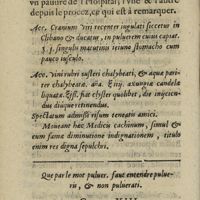 un pauure de l'Hospital, l'vne & l'autre
depuis le procez, ce qui est à remarquer.
Acc. Cranium viri recenter iugulati siccetur in
Clibano & ducatur, in puluerem cuius capiat.
℥. j. singulis matutinis ieiuno stomacho cum
pauco iusculo.
Acc. vini rubri austeri chalybeati, & aquæ pari-
ter chalybeatæ. ana. ℥iiij. axungiæ candela
liquatæ. ℥iß. fiat ehster quolibet, die iniicien-
dus diéque retinendus.
Spectatum admissi risum teneatis amici.
Moueant hæc Medicis cachinum, simul &
cum summa diminutione indignationem, titulo
enim res digna sepulchri.
Que par le mot puluer. faut entendre pulue-
ris, & non puluerati.